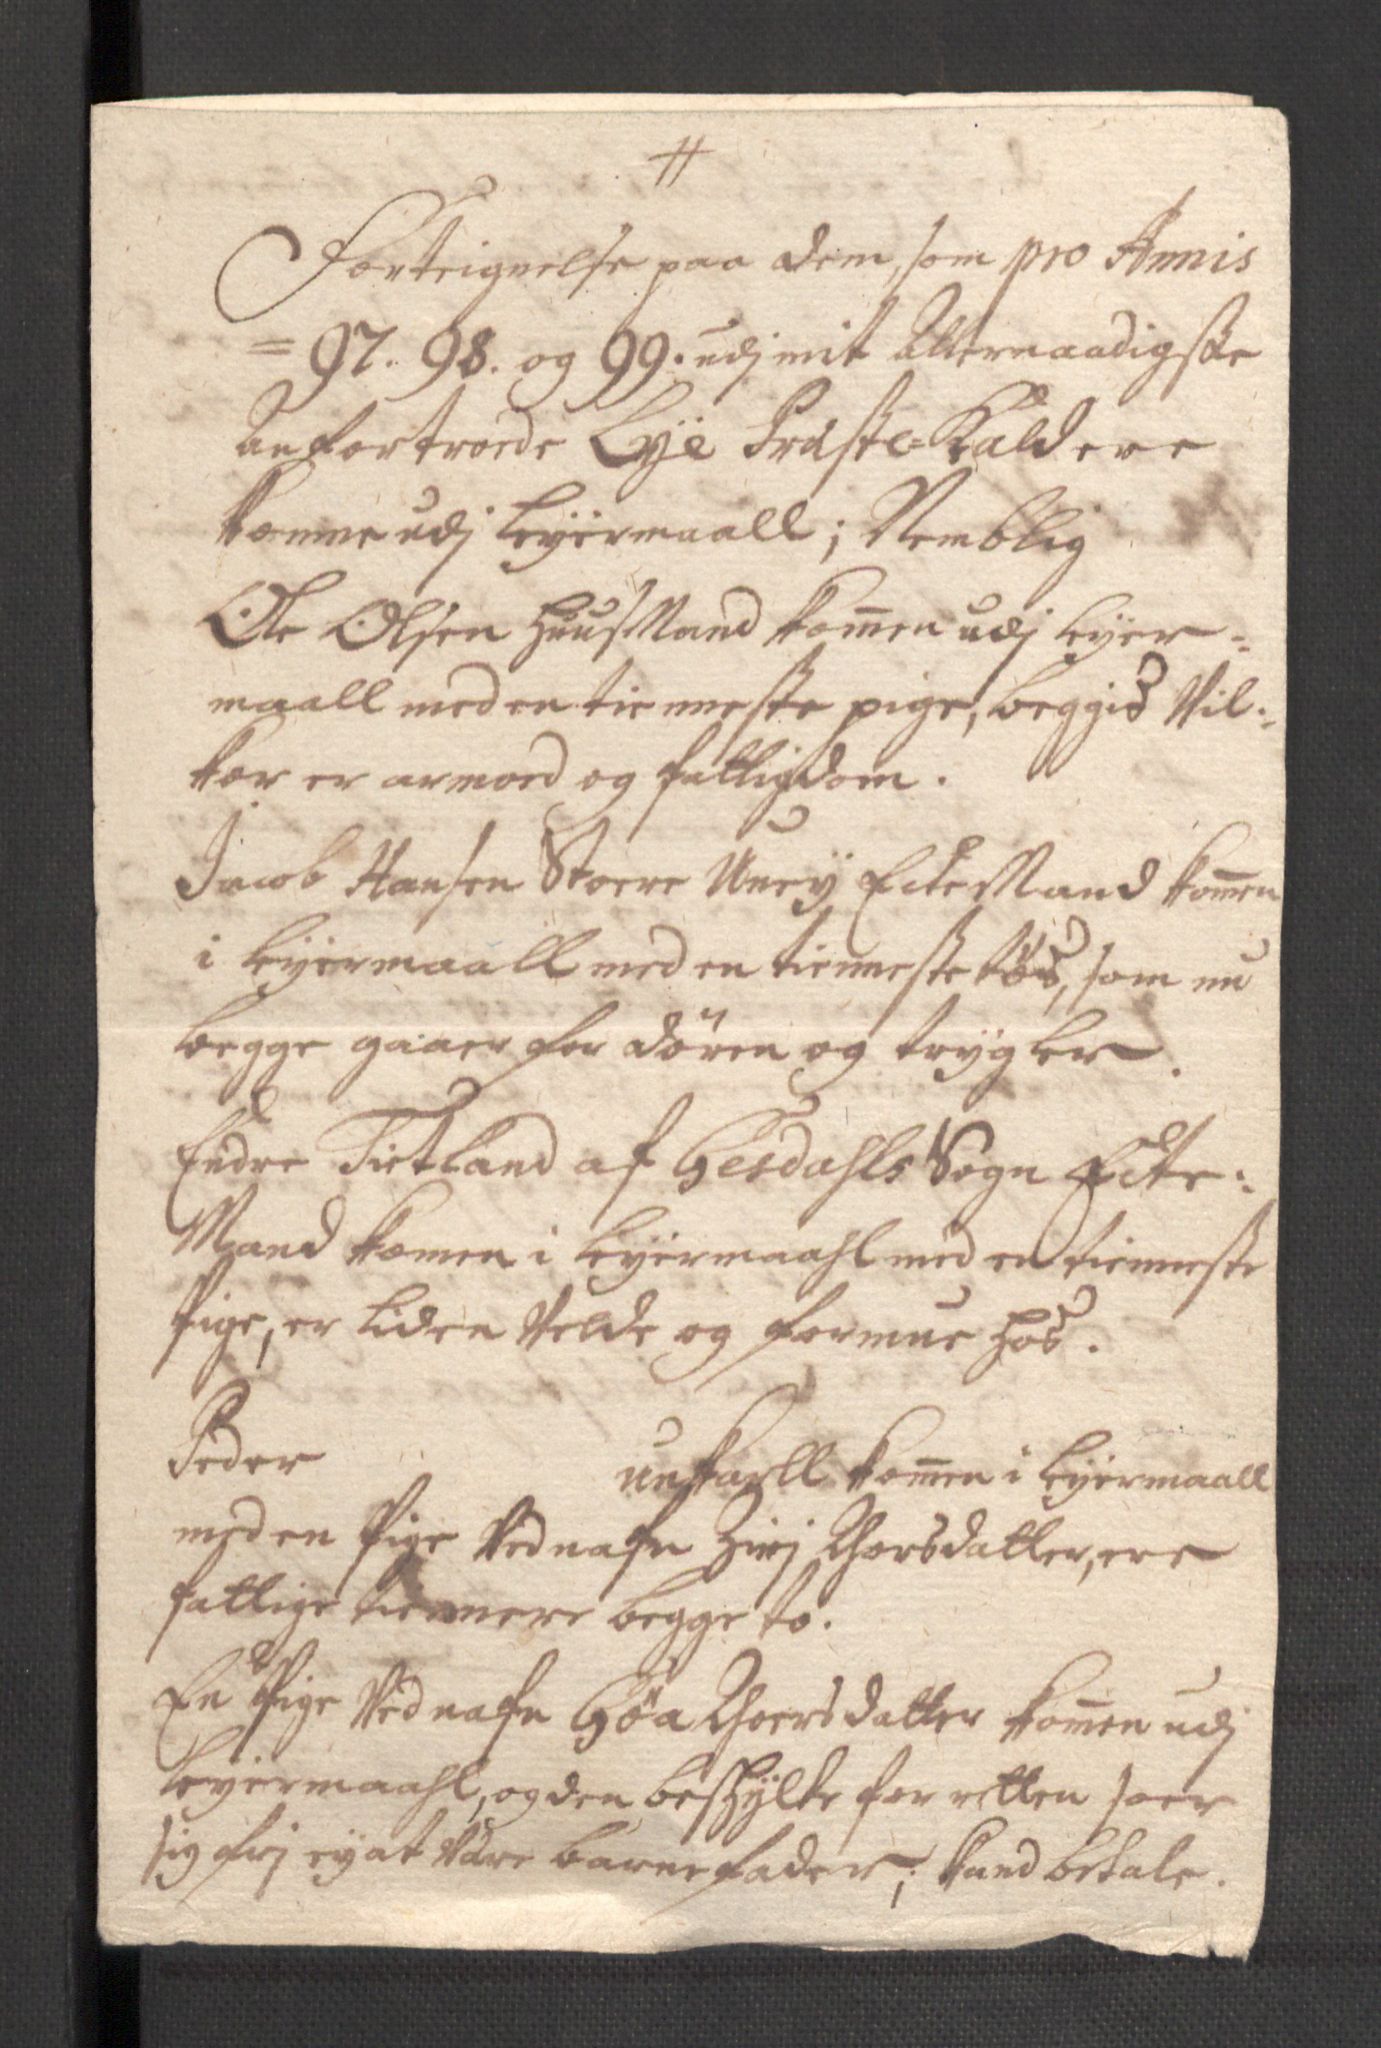 #
Forteignelse paa dem, som pro Annis
= 97. 98. og 99. udj mit Allernaadigste
Anfortroede Lÿe Præste-Kald ere
komne udj Leÿermaall; Nemblig
Ole Olsen HuusMand kommen udj Leÿer-
maall med en tienneste pige, beggis Vil-
kor er armod og fattigdom.
Jacob Hansen Stoere EcteMand kommen
i Leÿermaall med en tienneste tøs, som nu
begge gaaer for dören og trÿgler.
Endre Tietland af Giesdahls Sogn Ecte-
Mand komen i Leÿermaahl med en tienneste
Pige, er liden Velde og formue hos.
Peder unkarll kommen i Leÿermaall
med en Pige Ved nafn Zirj Thorsdatter, ere
fattige tiennere begge to.
En Pige Ved nafn Göa Thoersdatter kommen udj
Leÿermaahl, og den beskÿlte for retten soer
sig frj eÿ at Være barnefader; kand betale.